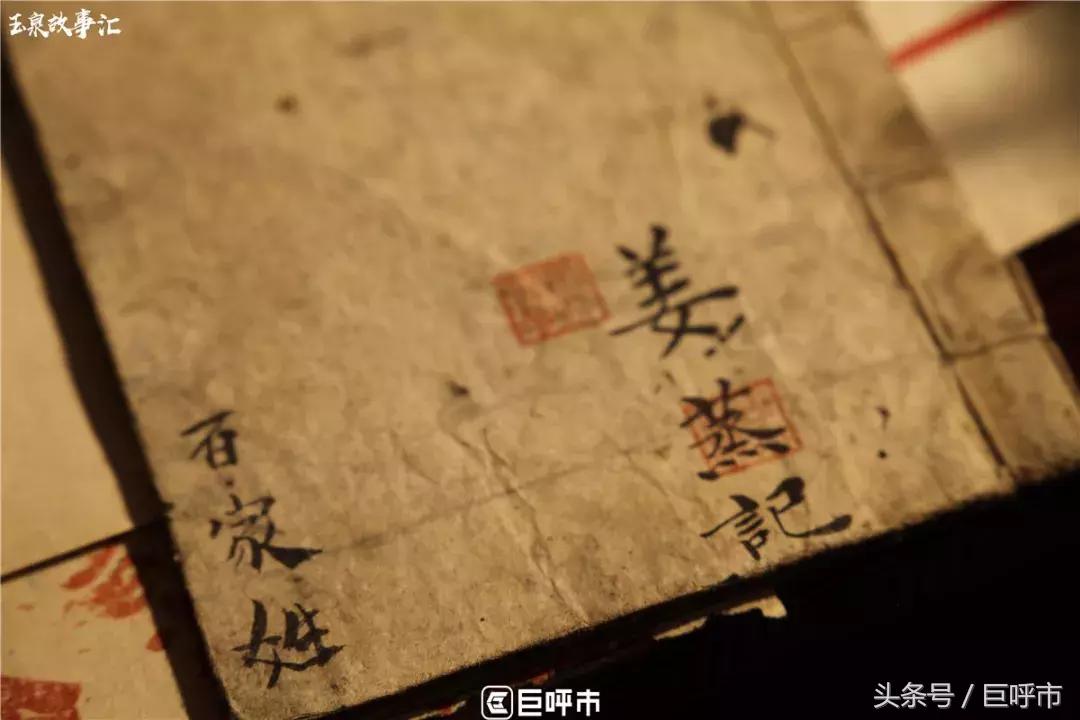 玉泉故事汇
姜蒸記
百家姓
巨呼市
头条号 / 巨呼市